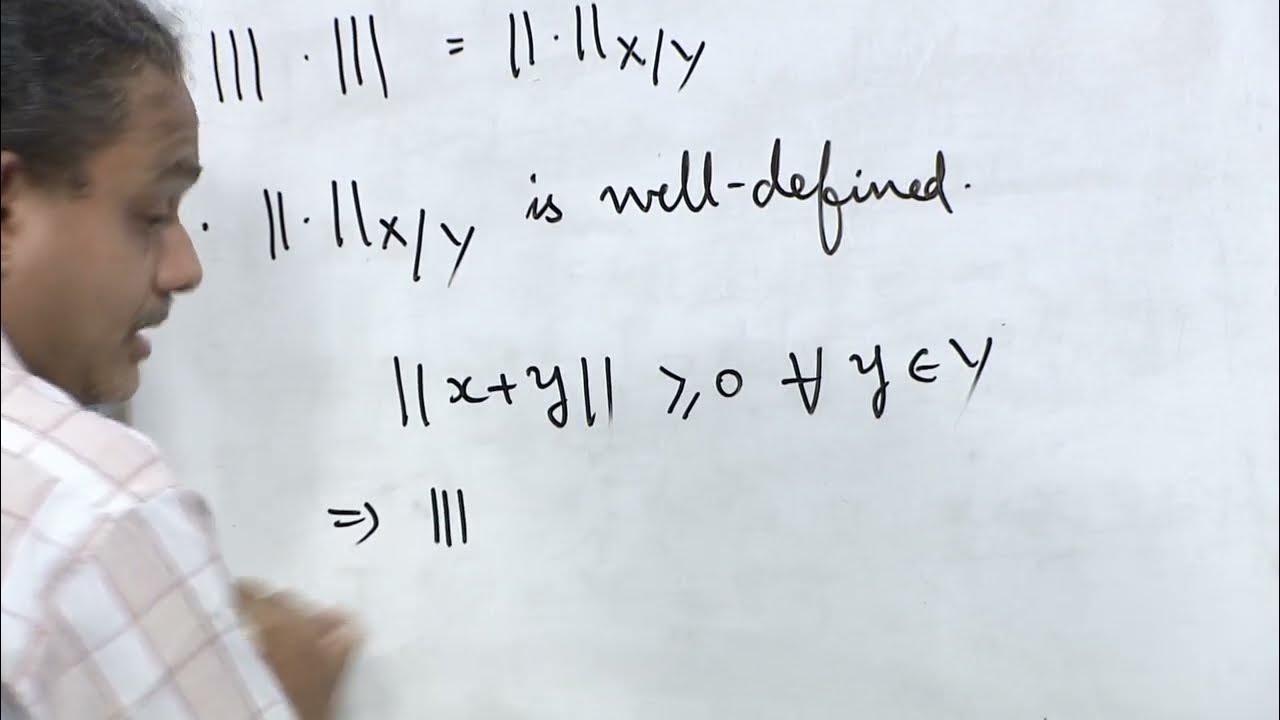 ||| · ||| = ||·||X/Y
· ||·||X/Y is well-defined.
||x+y|| ⩾0 ∀ y ∈ Y
⇒ |||